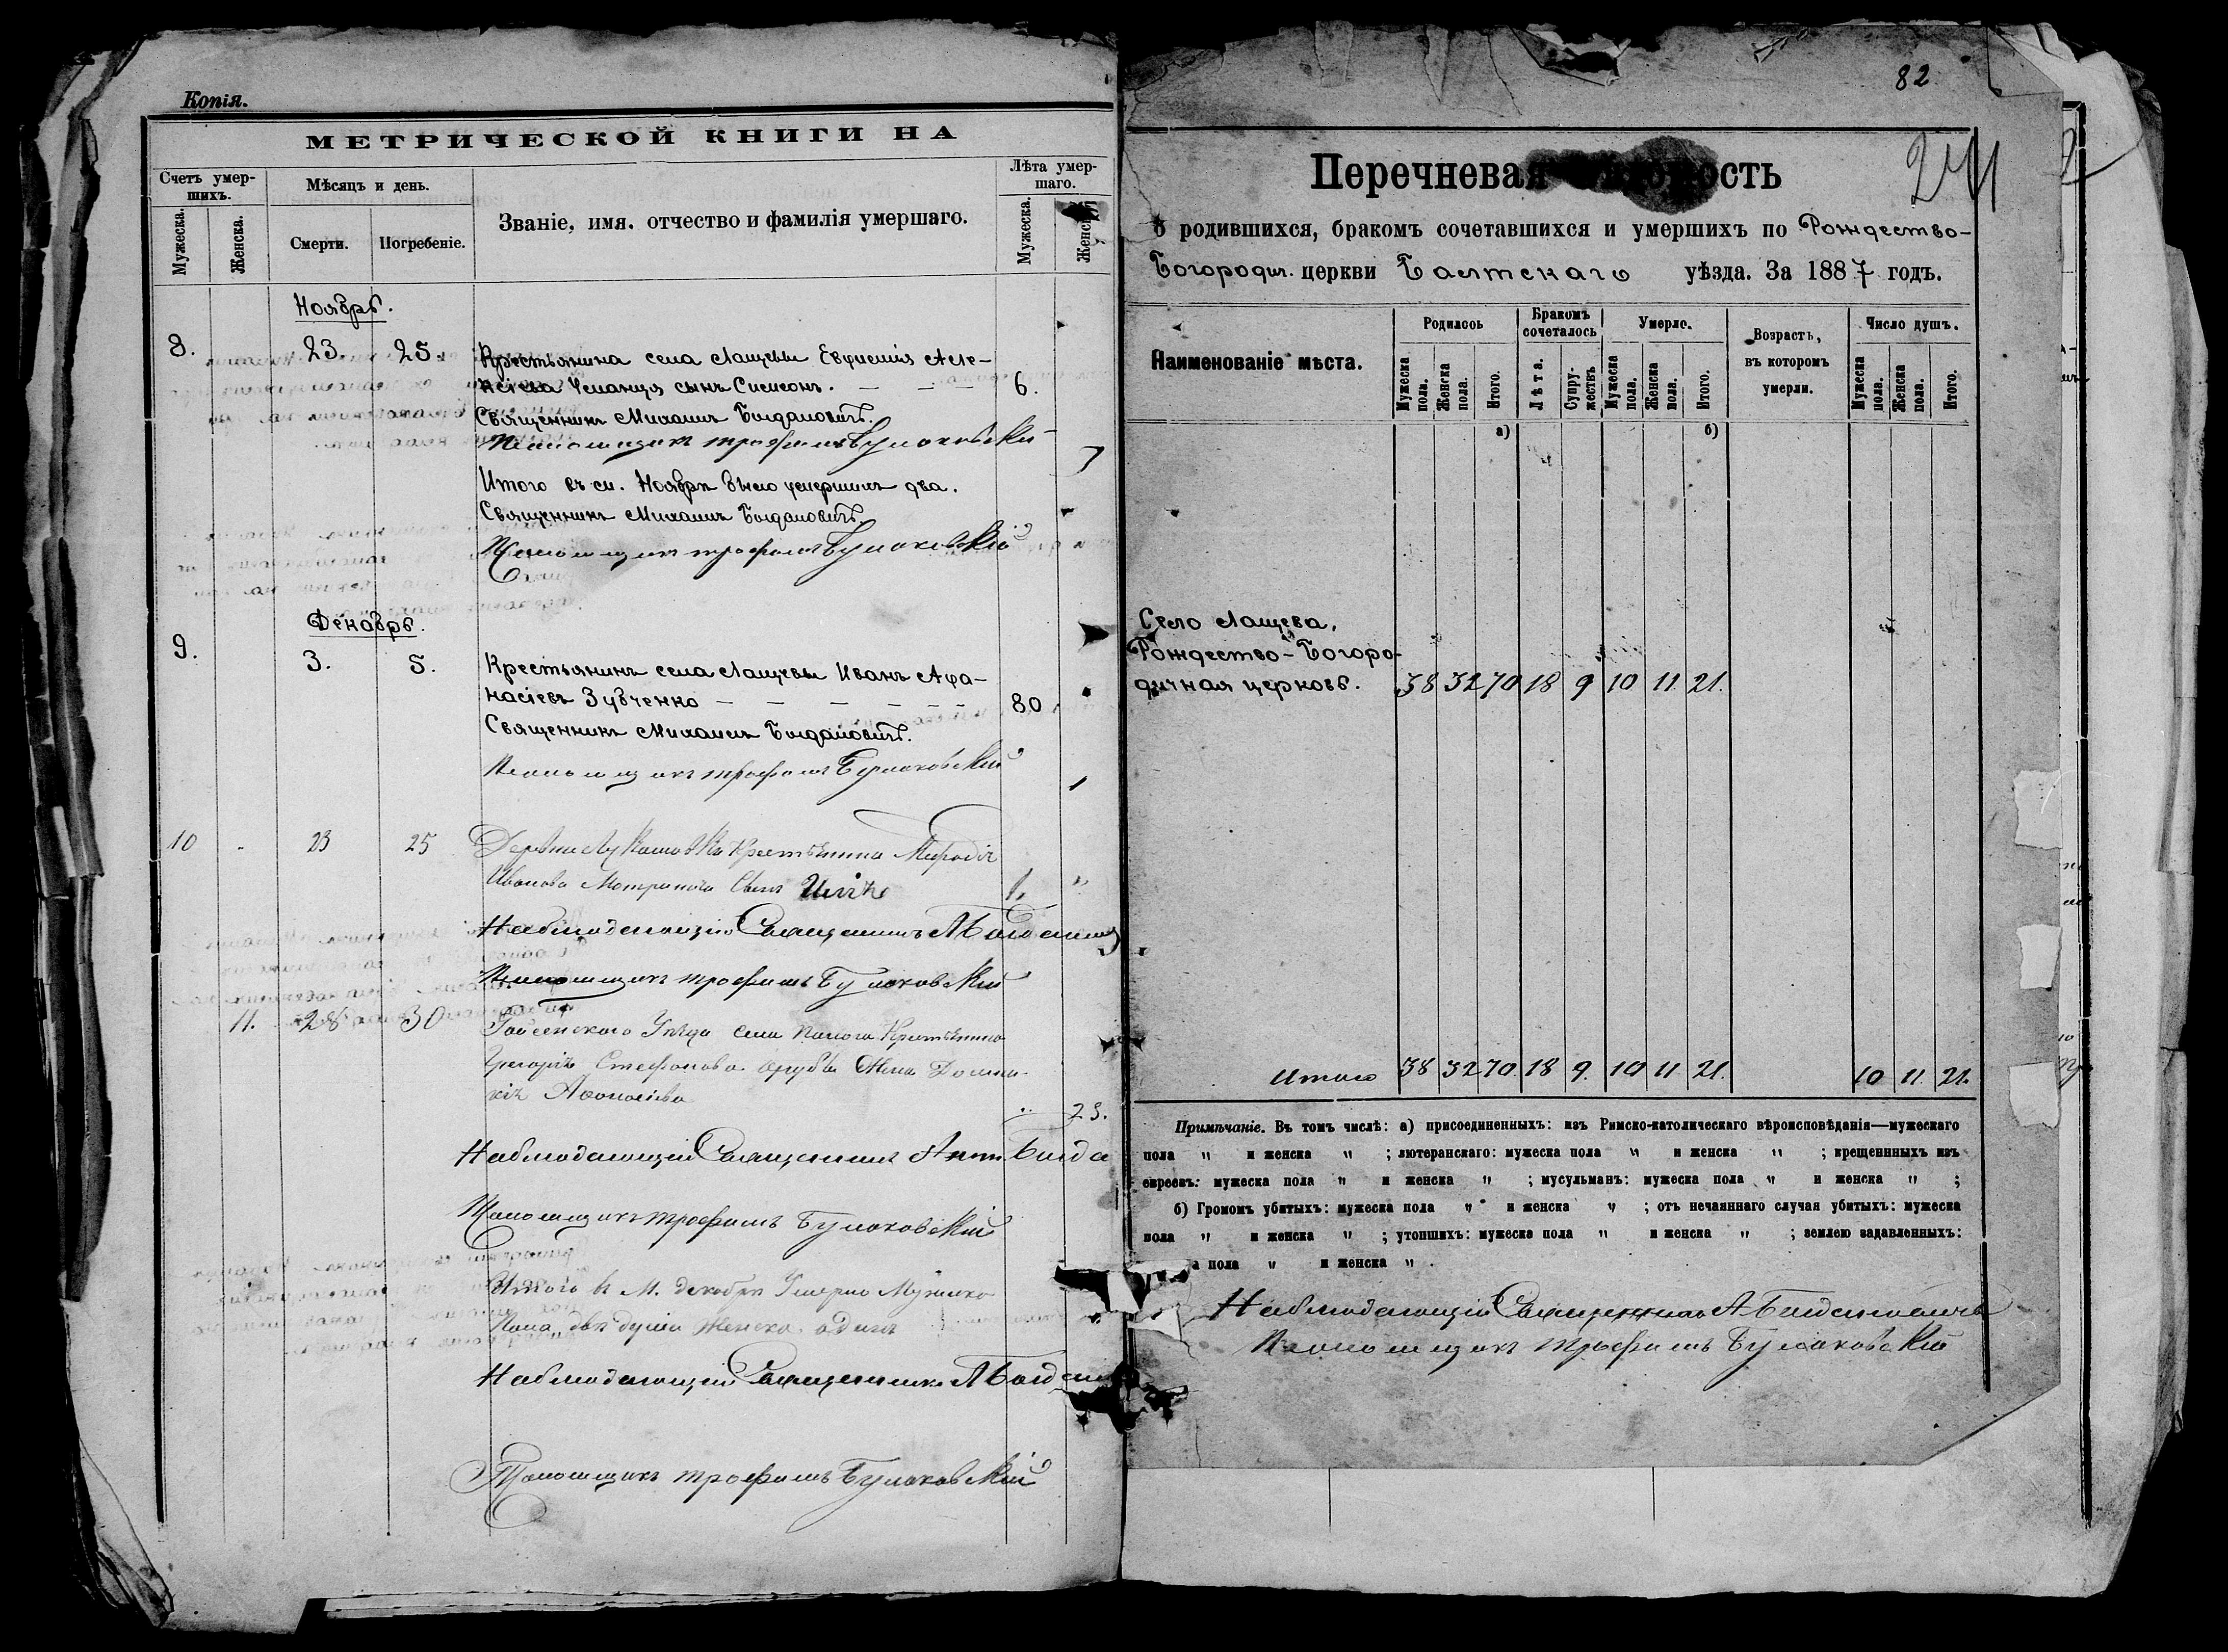 Копія.
МЕТРИЧЕСКОЙ КНИГИ НА
Счетъ умер-
шихъ.
Мѣсяцъ и день.
Званіе, имя. отчество и фамилія умершаго.
Лѣта умер-
шаго.
Мужеска.
Женска.
Смерти.
Погребеніе.
Мужеска.
Женск
Ноябрь.
8. 23. 25. Крестьянина села Лащевы Евфимія Але-
ксіева сынъ Симеонъ. 6.
Священникъ Михаилъ Богдановичъ.
Трофимъ Булаковскій
Итого въ м. Ноябрѣ было умершихъ два.
Священникъ Михаилъ Богдановичъ.
Трофимъ Булаковскій
Декабрь.
9. 3. 5. Крестьянинъ села Лащевы Иванъ Афа-
насіевъ Зубченко 80.
Священникъ Михаилъ Богдановичъ.
Трофимъ Булаковскій
10 23 25 Деревни Крестьянина
Иванова сынъ 1.
Наблюдающій Священникъ А Богданов
Трофимъ Булаковскій
11. 28 30 Гайсенскаго Уѣзда села Крестьянина
Григорія Стефанова Жена Домни-
кія 23.
Наблюдающій Священникъ Богда
Трофимъ Булаковскій
Итого в М. декабрѣ Умерло Мужеско
Пола двѣ души Женско одинъ
Наблюдающій Священникъ А Богдан
Трофимъ Булаковскій
82
241
Перечневая вѣдомость
о родившихся, бракомъ сочетавшихся и умершихъ по Рождество-
Богородич. церкви Балтскаго уѣзда. За 1887 годъ.
Наименованіе мѣста.
Родилось
Бракомъ
сочеталось
Умерло.
Возрастъ,
въ которомъ
умерли.
Число душъ.
Мужеска
пола.
Женска
пола.
Итого.
Лѣта.
Супру-
жествъ
Мужеска
пола.
Женска
пола.
Итого.
Мужеска
пола.
Женска
пола.
Итого.
а) б)
Село Лащева,
Рождество-Богоро-
дичная церковь. 38 32 70 18 9 10 11 21.
Итого 38 32 70. 18 9. 10 11 21. 10 11. 21.
Примѣчаніе. Въ томъ числѣ: а) присоединенныхъ: изъ Римско-католическаго вѣроисповѣданія—мужескаго
пола " и женска " ; лютеранскаго: мужеска пола " и женска " ; крещеннныхъ изъ
евреевъ: мужеска пола " и женска " ; мусульманъ: мужеска пола " и женска " ;
б) Громомъ убитыхъ: мужеска пола " и женска " ; отъ нечаяннаго случая убитыхъ: мужеска
пола " и женска " ; утопшихъ: мужеска пола " и женска " ; землею задавленныхъ:
а пола " и женска " .
Наблюдающій Священникъ А Богдановичъ
Трофимъ Булаковскій